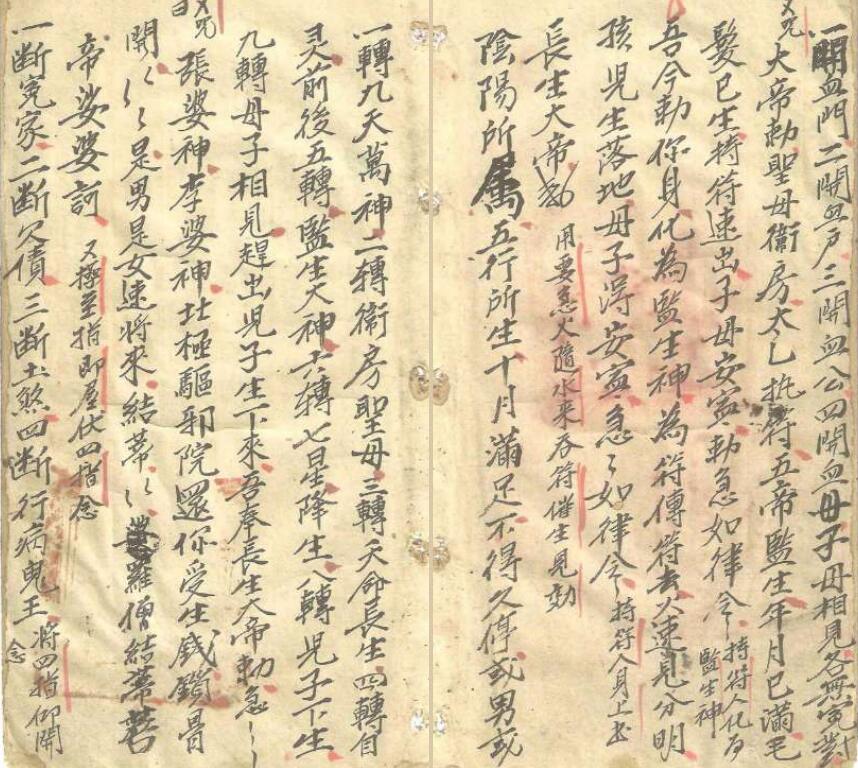 一開血門二開血戶三開血公四開血母子母相見各無冤對
又咒
大帝勅聖母衛房太乙抗符五帝監生年月已滿毛
髮已生持符速出子母安寧勅急如律令持符人化为監生神
吾今勅你身化為監生神為符傳符去火速見分明
孩兒生落地母子淂安寧急〻如律令持符人身上书
長生大帝勅用要急火隨水来吞符催生見効
陰陽所属五行所生十月滿足不得久停或男或
一轉九天萬神二转衛房聖母三轉天命長生四轉自
灵前後五轉監生大神六轉七星降生八轉兒子下生
九轉母子相見趕出兒子生下來吾奉長生大帝勅急〻
又咒曰
張婆神李婆神北極驅邪院還你受生錢鎖骨
開〻〻是男是女速將來結蒂〻羅僧結蒂
帝娑婆訶又極至指即屋伏四指念
一断冤家二断欠債三断土煞四断行病鬼王將四指仰開念